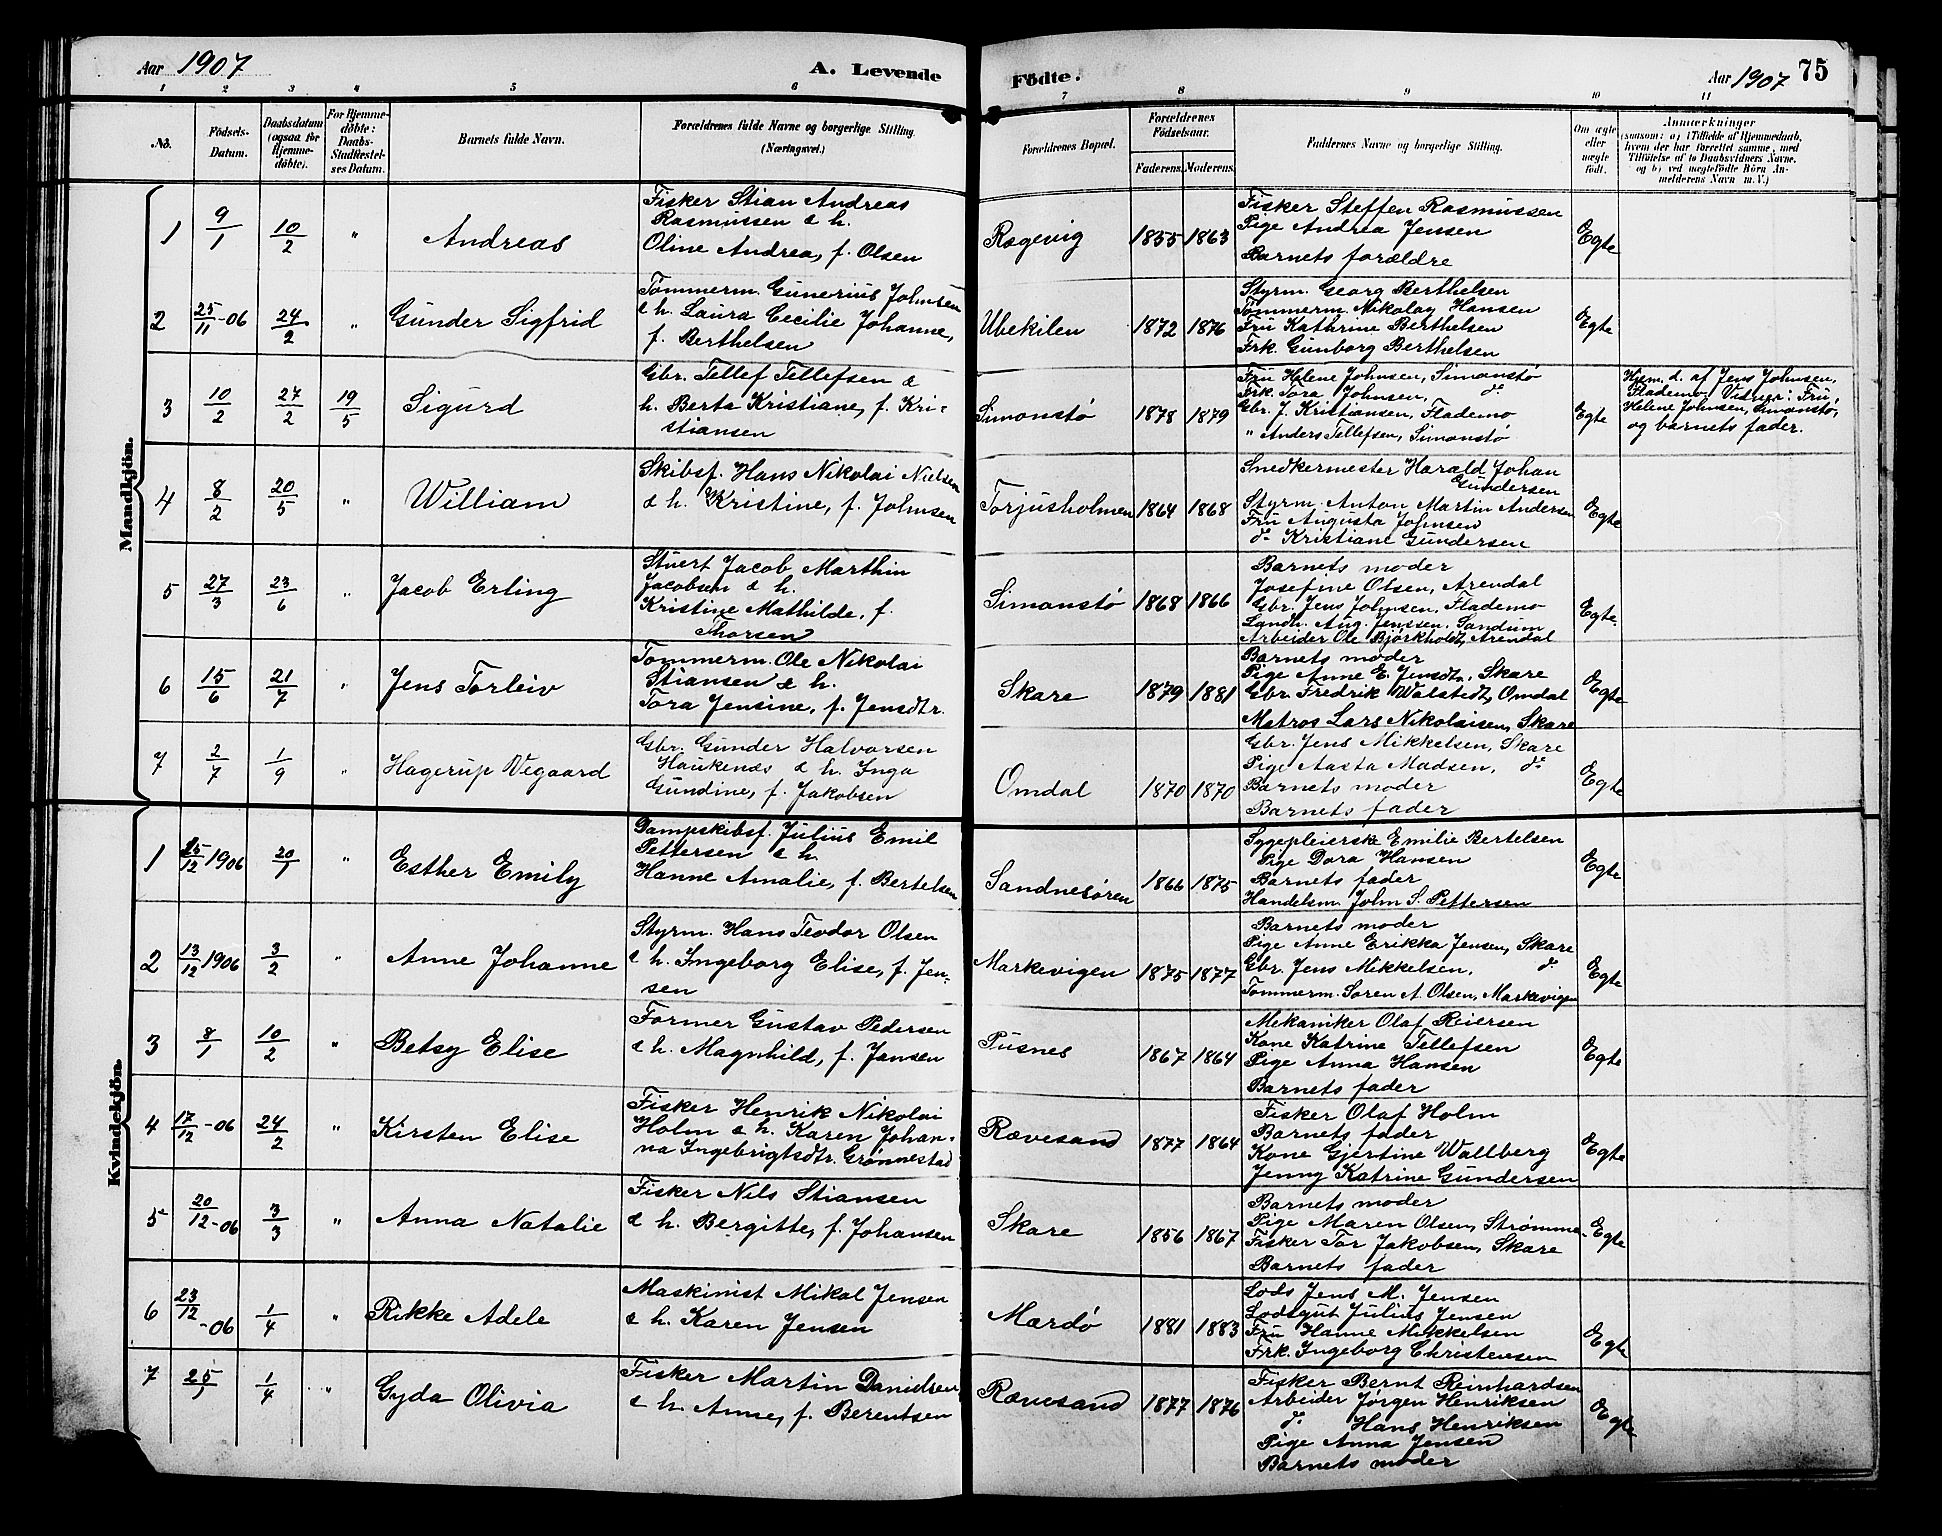 Aar 1907
A. Levende
Födte.
Aar 1907 75
1 2 3 4 5 6 7 8 9 10 11
No.
Födsels-
Datum.
Daabsdatum
(ogsaa for
Hjemme-
döbte).
For Hjemme-
döbte:
Daabs-
Stadfæstel-
ses Datum.
Barnets fulde Navn.
Forældrenes fulde Navne og borgerlige Stilling.
(Næringsvei.)
Forældrenes Bopæl.
Forældrenes
Födselsaar.
Faderens. Moderens.
Faddernes Navne og borgerlige Stilling.
Om ægte
eller
uægte
födt.
Anmærkninger
(saasom: a) i Tilfælde af Hjemmedaab,
hvem der har forrettet samme, med
Tilföielse af to Daabsvidners Navne,
og b) ved uægtefödte Börn An-
melderens Navn m. V.)
Mandkjön.
1 9/1 10/2 " Andreas
Fisker Stian Andreas
Rasmussen & h.
Oline Andrea, f. Olsen
Rægevig 1855 1863
Fisker Steffen Rasmussen
Pige Andrea Jensen
Barnets forældre
Egte
2 25/11-06 24/2 " Gunder Sigfrid
Tømmerm. Gunerius Johnsen
& h. Laura Cecilie Johanne,
f. Berthelsen
Ubekilen 1872 1876
Styrm. Georg Berthelsen
Tømmerm. Mikolay Hansen
Fru Kathrine Berthelsen
Frk. Gunborg Berthelsen
Egte
3 10/2 27/2 19/5 Sigurd
Gbr. Tellef Tellefsen &
h. Berte Kristiane, f. Kri-
stiansen
Simonstø 1878 1879
Fru Helene Johnsen, Simonstø
Frk. Tora Johnsen, do
Gbr. J. Kristiansen, Flademo
" Anders Tellefsen, Simonstø
Egte
Hjem. d. af Jens Johnsen,
Flademo. Vidner: Fru
Helene Johnsen, Simonstø,
og barnets fader.
4 8/2 20/5 " William
Skibsf. Hans Nikolai Nielsen
& h. Kristine, f. Johnsen
Torjusholmen 1864 1868
Snedkermester Harald Johan
Gundersen
Styrm. Anton Martin Andersen
Fru Augusta Johnsen
do Kristiane Gundersen
Egte
5 27/3 23/6 " Jacob Erling
Stuert Jacob Marthin
Jacobsen & h.
Kristine Mathilde, f.
Thorsen
Simonstø 1868 1866
Barnets moder
Josefine Olsen, Arendal
Gbr. Jens Johnsen, Flademo
Landh. Aug. Jenssen, Sandum
Arbeider Ole Bjørkholdt, Arendal
Egte.
6 15/6 21/7 " Jens Torleiv
Tømmerm. Ole Nikolai
Stiansen & h.
Tora Jensine, f. Jensdtr.
Skare 1879 1881
Barnets moder
Pige Anne E. Jensdtr, Skare
Gbr. Fredrik Walstedt, Omdal
Matros Lars Nikolaisen, Skare
Egte
7 2/7 1/9 " Hagerup Vegaard
Gbr. Gunder Halvorsen
Haukenes & h. Inga
Gundine, f. Jakobsen
Omdal 1870 1870
Gbr. Jens Mikkelsen, Skare
Pige Aasta Madsen, do
Barnets moder
Barnets fader
Egte
Kvindekjön.
1 25/12 1906 20/1 " Esther Emily
Dampskibsf. Julius Emil
Pettersen & h.
Hanne Amalie, f. Bertelsen
Sandnesøren 1866 1875
Sygepleierske Emilie Bertelsen
Pige Dora Hansen
Barnets fader
Handelsm. John S. Pettersen
Egte
2 13/12 1906 3/2 " Anne Johanne
Styrm. Hans Teodor Olsen
& h. Ingeborg Elise, f. Jen-
sen
Markevigen 1875 1877
Barnets moder
Pige Anne Erikka Jensen, Skare
Gbr. Jens Mikkelsen, do
Tømmerm. Søren A. Olsen, Markevigen
Egte
3 8/1 10/2 " Betsy Elise
Former Gustav Pedersen
& h. Magnhild, f. Jansen
Pusnes 1867 1864
Mekaniker Olaf Reiersen
Kone Katrine Tellefsen
Pige Anna Hansen
Barnets fader
Egte
4 17/12-06 24/2 " Kirsten Elise
Fisker Henrik Nikolai
Holm & h. Karen Johan-
na Ingebrigtsdtr. Grønnestad
Rævesand 1877 1864
Fisker Olaf Holm
Barnets fader
Kone Gjertine Wallberg
Jenny Katrine Gundersen
Egte
5 20/12-06 3/3 " Anna Natalie
Fisker Nils Stiansen
& h. Bergitte, f. Johansen
Skare 1856 1867
Barnets moder
Pige Maren Olsen, Strømmen
Fisker Tor Jakobsen, Skare
Barnets fader
Egte
6 23/12-06 1/4 " Rikke Adele
Maskinist Mikal Jensen
& h. Karen Jensen
Mærdø 1881 1883
Lods Jens M. Jensen
Lodsgut Julius Jensen
Fru Hanne Mikkelsen
Frk. Ingeborg Christensen
Egte
7 25/1 1/4 " Gyda Olivia
Fisker Martin Danielsen
& h. Anne, f. Berentsen
Rævesand 1877 1876
Fisker Bernt Reinhardsen
Arbeider Jørgen Henriksen
do Hans Henriksen
Pige Anna Jensen
Barnets moder
Egte